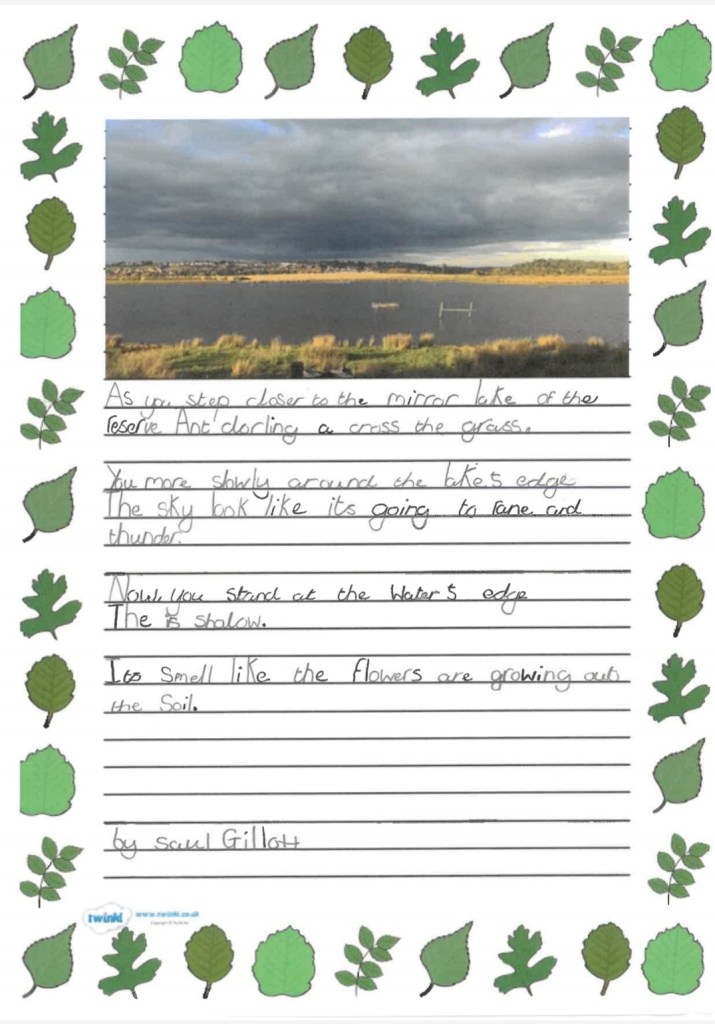 As you step closer to the mirror lake of the
reserve Ant darling a cross the grass.
You more slowly around the lake's edge
The sky look like its going to rane and
thunder.
Now, you stand at the Water's edge
The is shalow.
Its Smell like the flowers are growing out
the Soil.
by saul Gillott
twinkl www.twinkl.co.uk